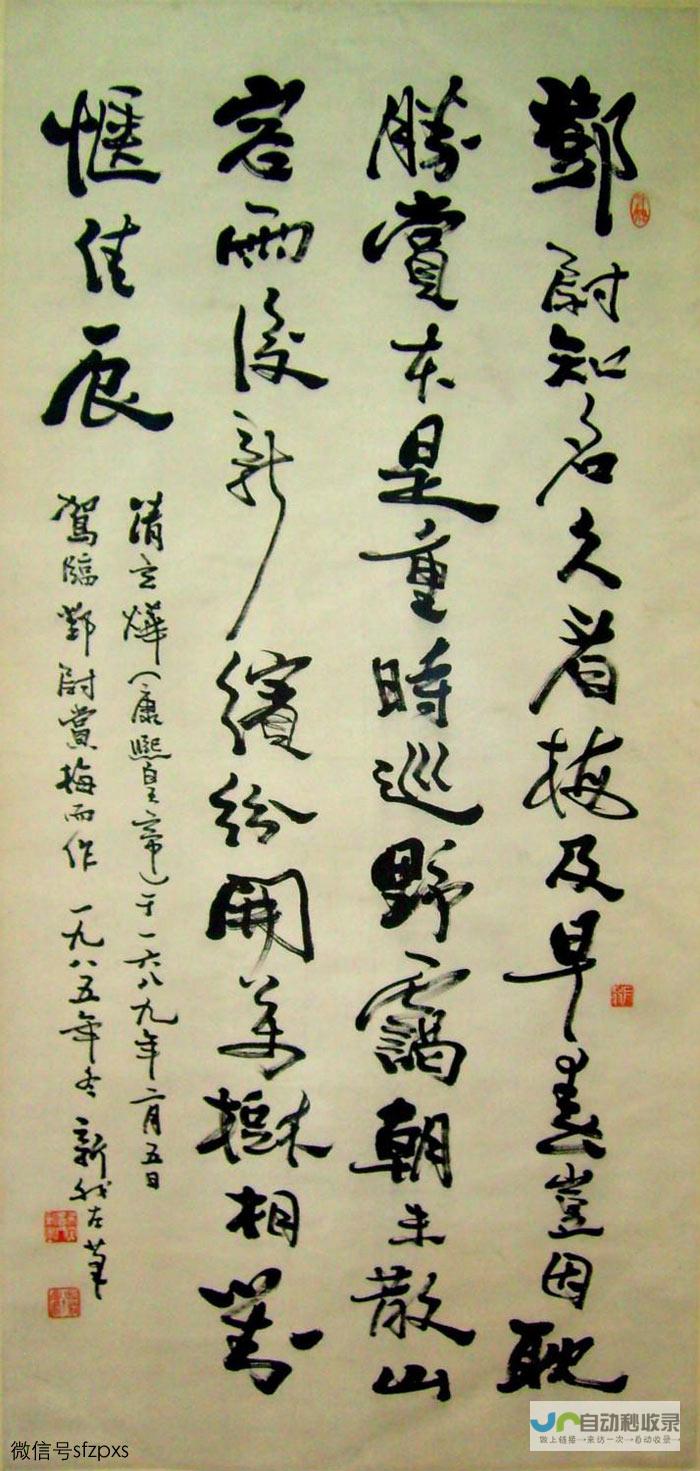 鄧尉知名久看梅及早春豈因耽
勝賞本是重時巡野靄朝未散山
容雨後新繽紛開萬樹相對
愜佳辰
清玄燁（康熙皇帝）于一六八九年二月五日
駕臨鄧尉賞梅而作 一九八五年冬 新我左筆
自动秒收录
做上链接→来访一次→自动收录→
微信号sfzpxs